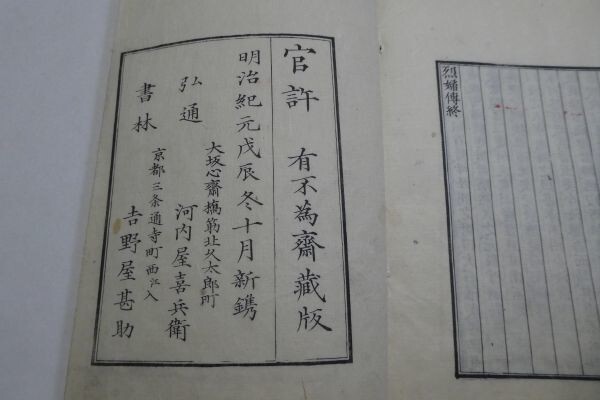 烈婦傳終
官許　有不為齋藏版
明治紀元戊辰冬十月新鐫
大坂心齋橋筋北久太郎町
弘通　河内屋喜兵衛
京都三条通寺町西江入
書林　吉野屋甚助